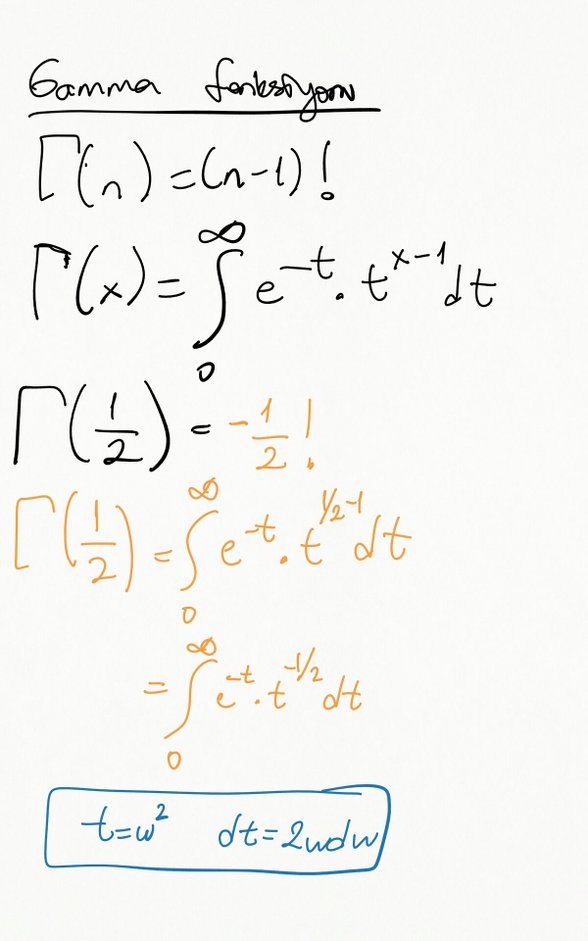 Gamma fonksiyonu
Γ(n) = (n-1)!
Γ(x) = ∫₀^∞ e^{-t} . t^{x-1} dt
Γ(1/2) = -1/2 !
Γ(1/2) = ∫₀^∞ e^{-t} . t^{1/2-1} dt
= ∫₀^∞ e^{-t} . t^{-1/2} dt
t=w² dt=2wdw